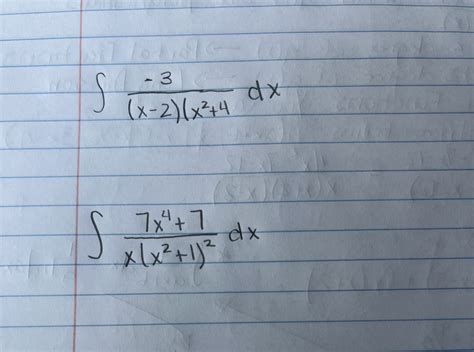 ∫ -3/((x-2)(x²+4) dx
∫ (7x⁴+7)/(x(x²+1)²) dx